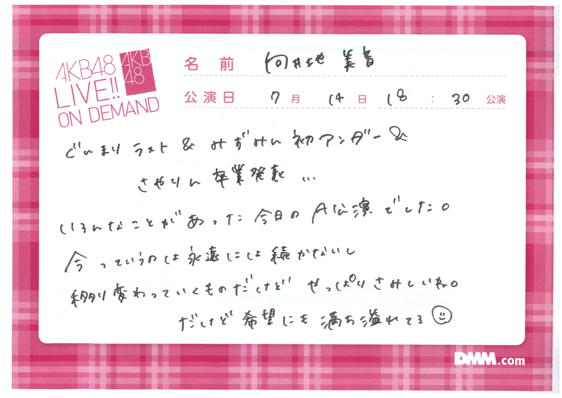 AKB48
LIVE!!
ON DEMAND
AKB
48
名前 向井地 美音
公演日 7月 14日 18:30 公演
どぅまりラスト & みずみん初アンダー &
さやりん 卒業発表 …
いろんなことがあった今日の A公演でした。
今っていうのは永遠には続かないし
移り変わっていくものだけど やっぱりさみしいね。
だけど希望にも満ち溢れてる
DMM.com